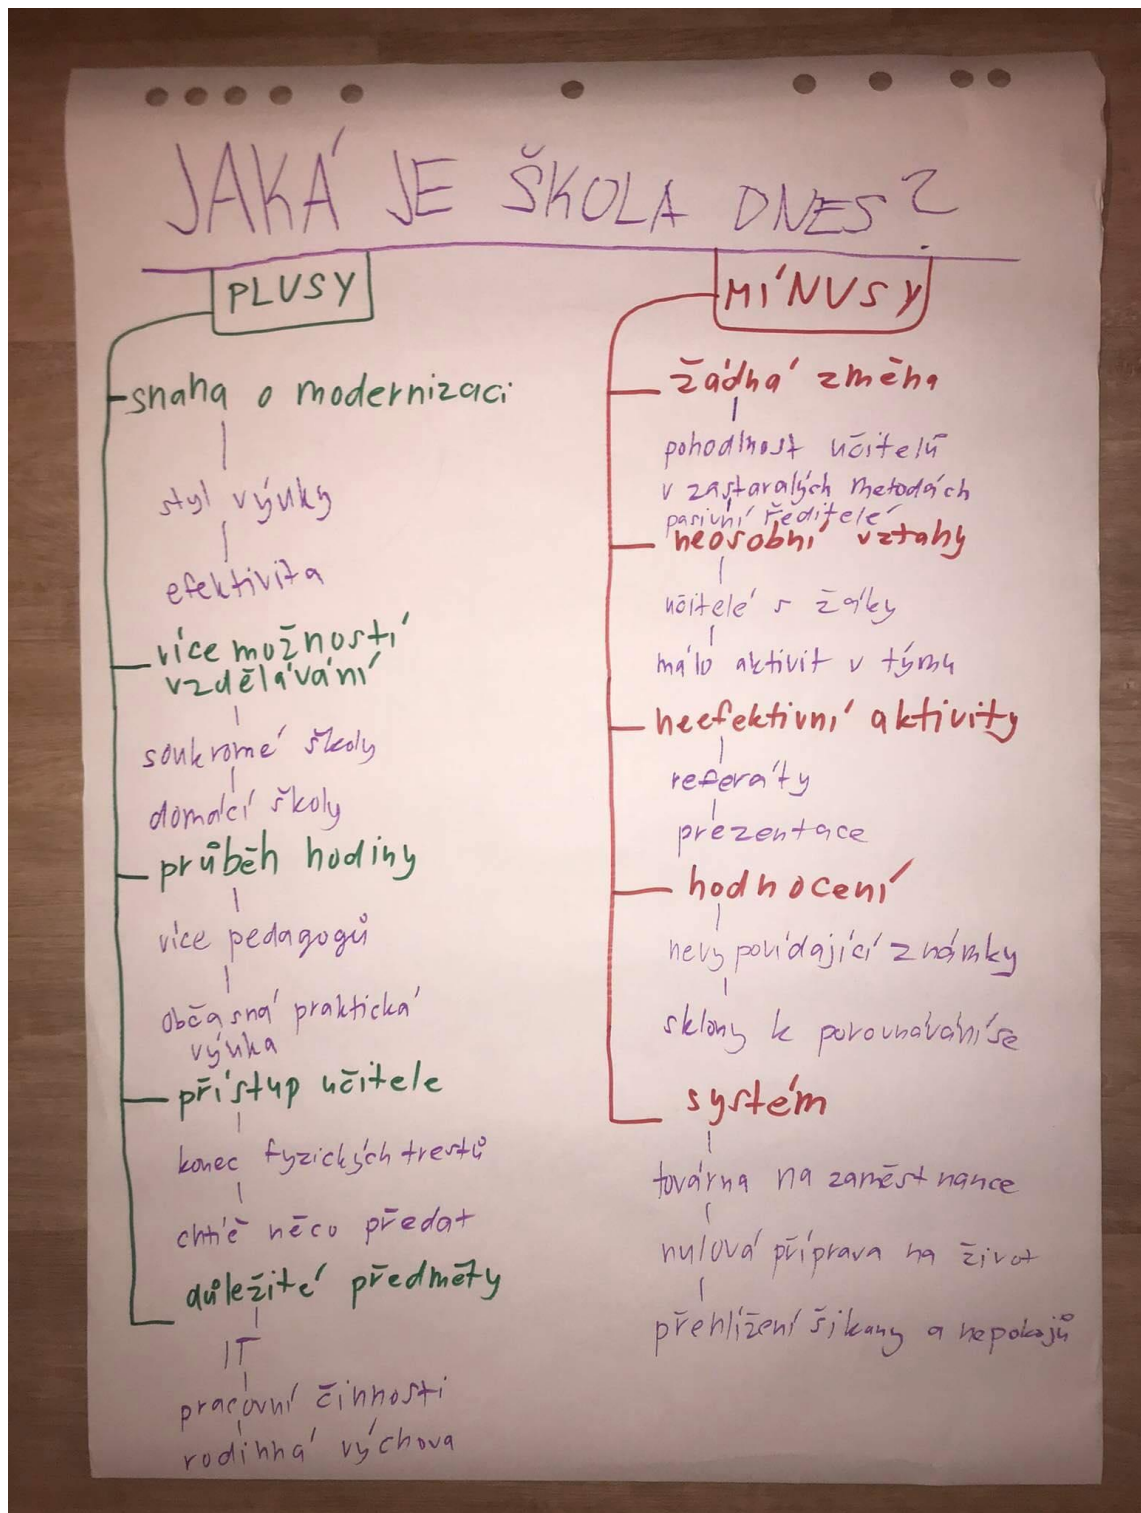 JAKÁ JE ŠKOLA DNES?
PLUSY
snaha o modernizaci
styl výuky
efektivita
více možností
vzdělávání
soukromé školy
domácí školy
průběh hodiny
více pedagogů
občasná praktická
výuka
přístup učitele
konec fyzických trestů
chtíč něco předat
důležité předměty
IT
pracovní činnosti
rodinná výchova
MÍNUSY
žádná změna
pohodlnost učitelů
v zastaralých metodách
pasivní ředitelé
neosobní vztahy
učitelé s žáky
málo aktivit v týmu
neefektivní aktivity
referáty
prezentace
hodnocení
nevypovídající známky
sklony k porovnávání se
systém
továrna na zaměstnance
nulová příprava na život
přehlížení šikany a nepokojů